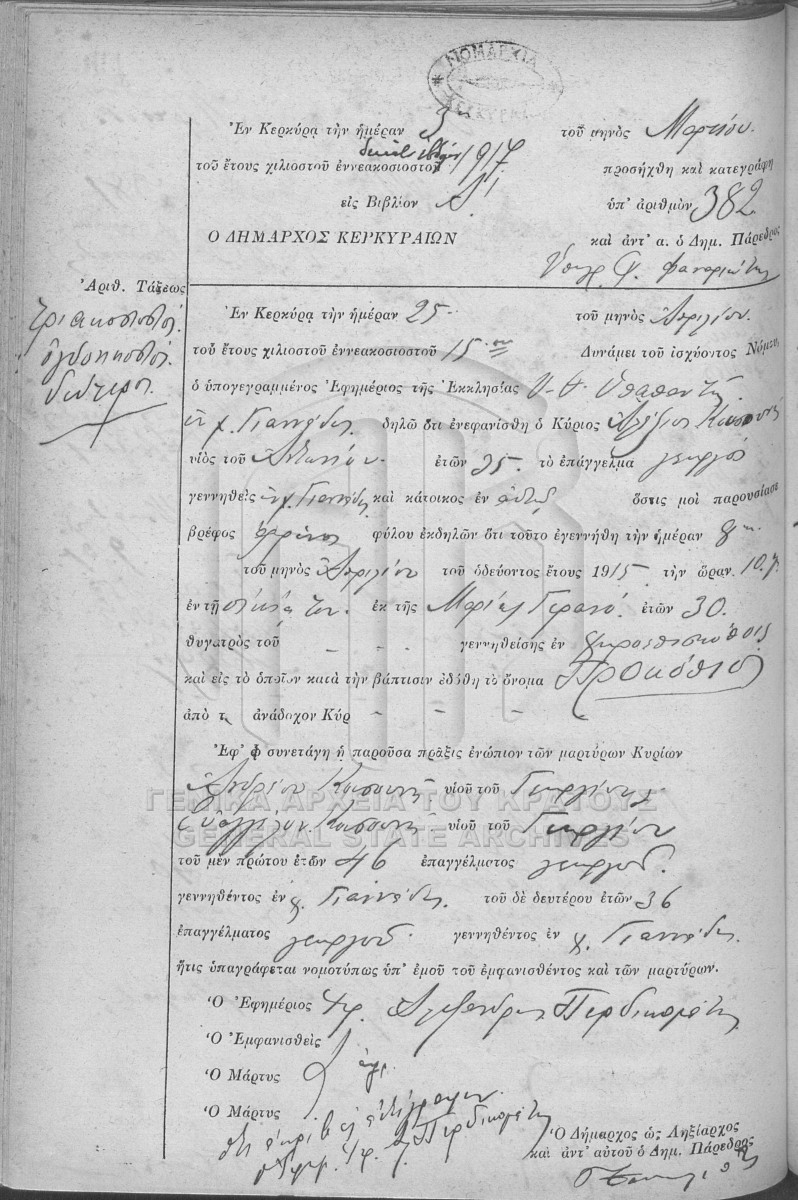 ΝΟΜΑΡΧΙΑ
ΚΕΡΚΥΡΑΣ
Ἐν Κερκύρᾳ τὴν ἡμέραν 3 τοῦ μηνὸς Μαρτίου
τοῦ ἔτους χιλιοστοῦ ἐννεακοσιοστοῦ 1917 προσήχθη καὶ κατεγράφη
εἰς Βιβλίον Α' ὑπ' ἀριθμὸν 382
Ο ΔΗΜΑΡΧΟΣ ΚΕΡΚΥΡΑΙΩΝ καὶ ἀντ' α. ὁ Δημ. Πάρεδρος
Ἀριθ. Τάξεως
τριακοστοστ.
ὀγδοηκοστ.
δεύτερο.
Ἐν Κερκύρᾳ τὴν ἡμέραν 25 τοῦ μηνὸς Ἀπριλίου
τοῦ ἔτους χιλιοστοῦ ἐννεακοσιοστοῦ 15ου Δυνάμει τοῦ ἰσχύοντος Νόμου,
ὁ ὑπογεγραμμένος Ἐφημέριος τῆς Ἐκκλησίας Υ.Θ. Ὑπαπαντῆς
ἐν χ. Γιαννάδες δηλῶ ὅτι ἐνεφανίσθη ὁ Κύριος Ἀλέξιος
υἱὸς τοῦ Ἀντωνίου ἐτῶν 35 τὸ ἐπάγγελμα γεωργὸς
γεννηθεὶς ἐν χ. Γιαννάδες καὶ κάτοικος ἐν ὅστις μοὶ παρουσίασε
βρέφος ἄρρενος φύλου ἐκδηλῶν ὅτι τοῦτο ἐγεννήθη τὴν ἡμέραν 8
τοῦ μηνὸς Ἀπριλίου τοῦ ὁδεύοντος ἔτους 1915 τὴν ὥραν 10
ἐν τῇ οἰκίᾳ του ἐκ τῆς Μαρίας ἐτῶν 30
θυγατρὸς τοῦ - - - γεννηθείσης ἐν
καὶ εἰς τὸ ὁποῖον κατὰ τὴν βάπτισιν ἐδόθη τὸ ὄνομα Προκόπιος
ἀπὸ τ ἀνάδοχον Κύρ - - -
Ἐφ' ᾧ συνετάγη ἡ παροῦσα πρᾶξις ἐνώπιον τῶν μαρτύρων Κυρίων
Ἀνδρέου υἱοῦ τοῦ Γεωργίου
Εὐαγγέλου υἱοῦ τοῦ Γεωργίου
ΓΕΝΙΚΑ ΑΡΧΕΙΑ ΤΟΥ ΚΡΑΤΟΥΣ
GENERAL STATE ARCHIVES
τοῦ μὲν πρώτου ἐτῶν 46 ἐπαγγέλματος γεωργοῦ
γεννηθέντος ἐν χ. Γιαννάδες τοῦ δὲ δευτέρου ἐτῶν 36
ἐπαγγέλματος γεωργοῦ γεννηθέντος ἐν χ. Γιαννάδες
ἥτις ὑπαγράφεται νομοτύπως ὑπ' ἐμοῦ τοῦ ἐμφανισθέντος καὶ τῶν μαρτύρων.
Ὁ Ἐφημέριος Ἀλέξανδρος Περδικομάτης
Ὁ Ἐμφανισθεὶς
Ὁ Μάρτυς
Ὁ Μάρτυς
Ὁ Δήμαρχος ὡς Ληξίαρχος
καὶ ἀντ' αὐτοῦ ὁ Δημ. Πάρεδρος